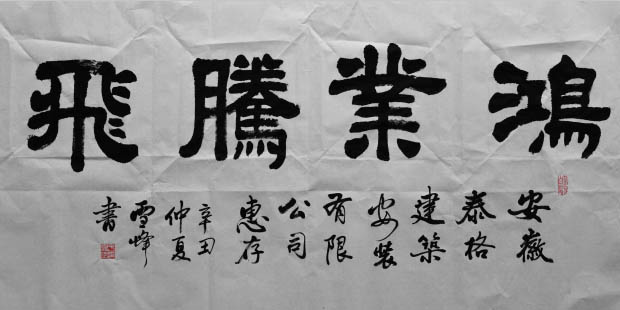 鴻業騰飛
安徽
泰格
建築
安裝
有限
公司
惠存
辛丑
仲夏
雪峰
書